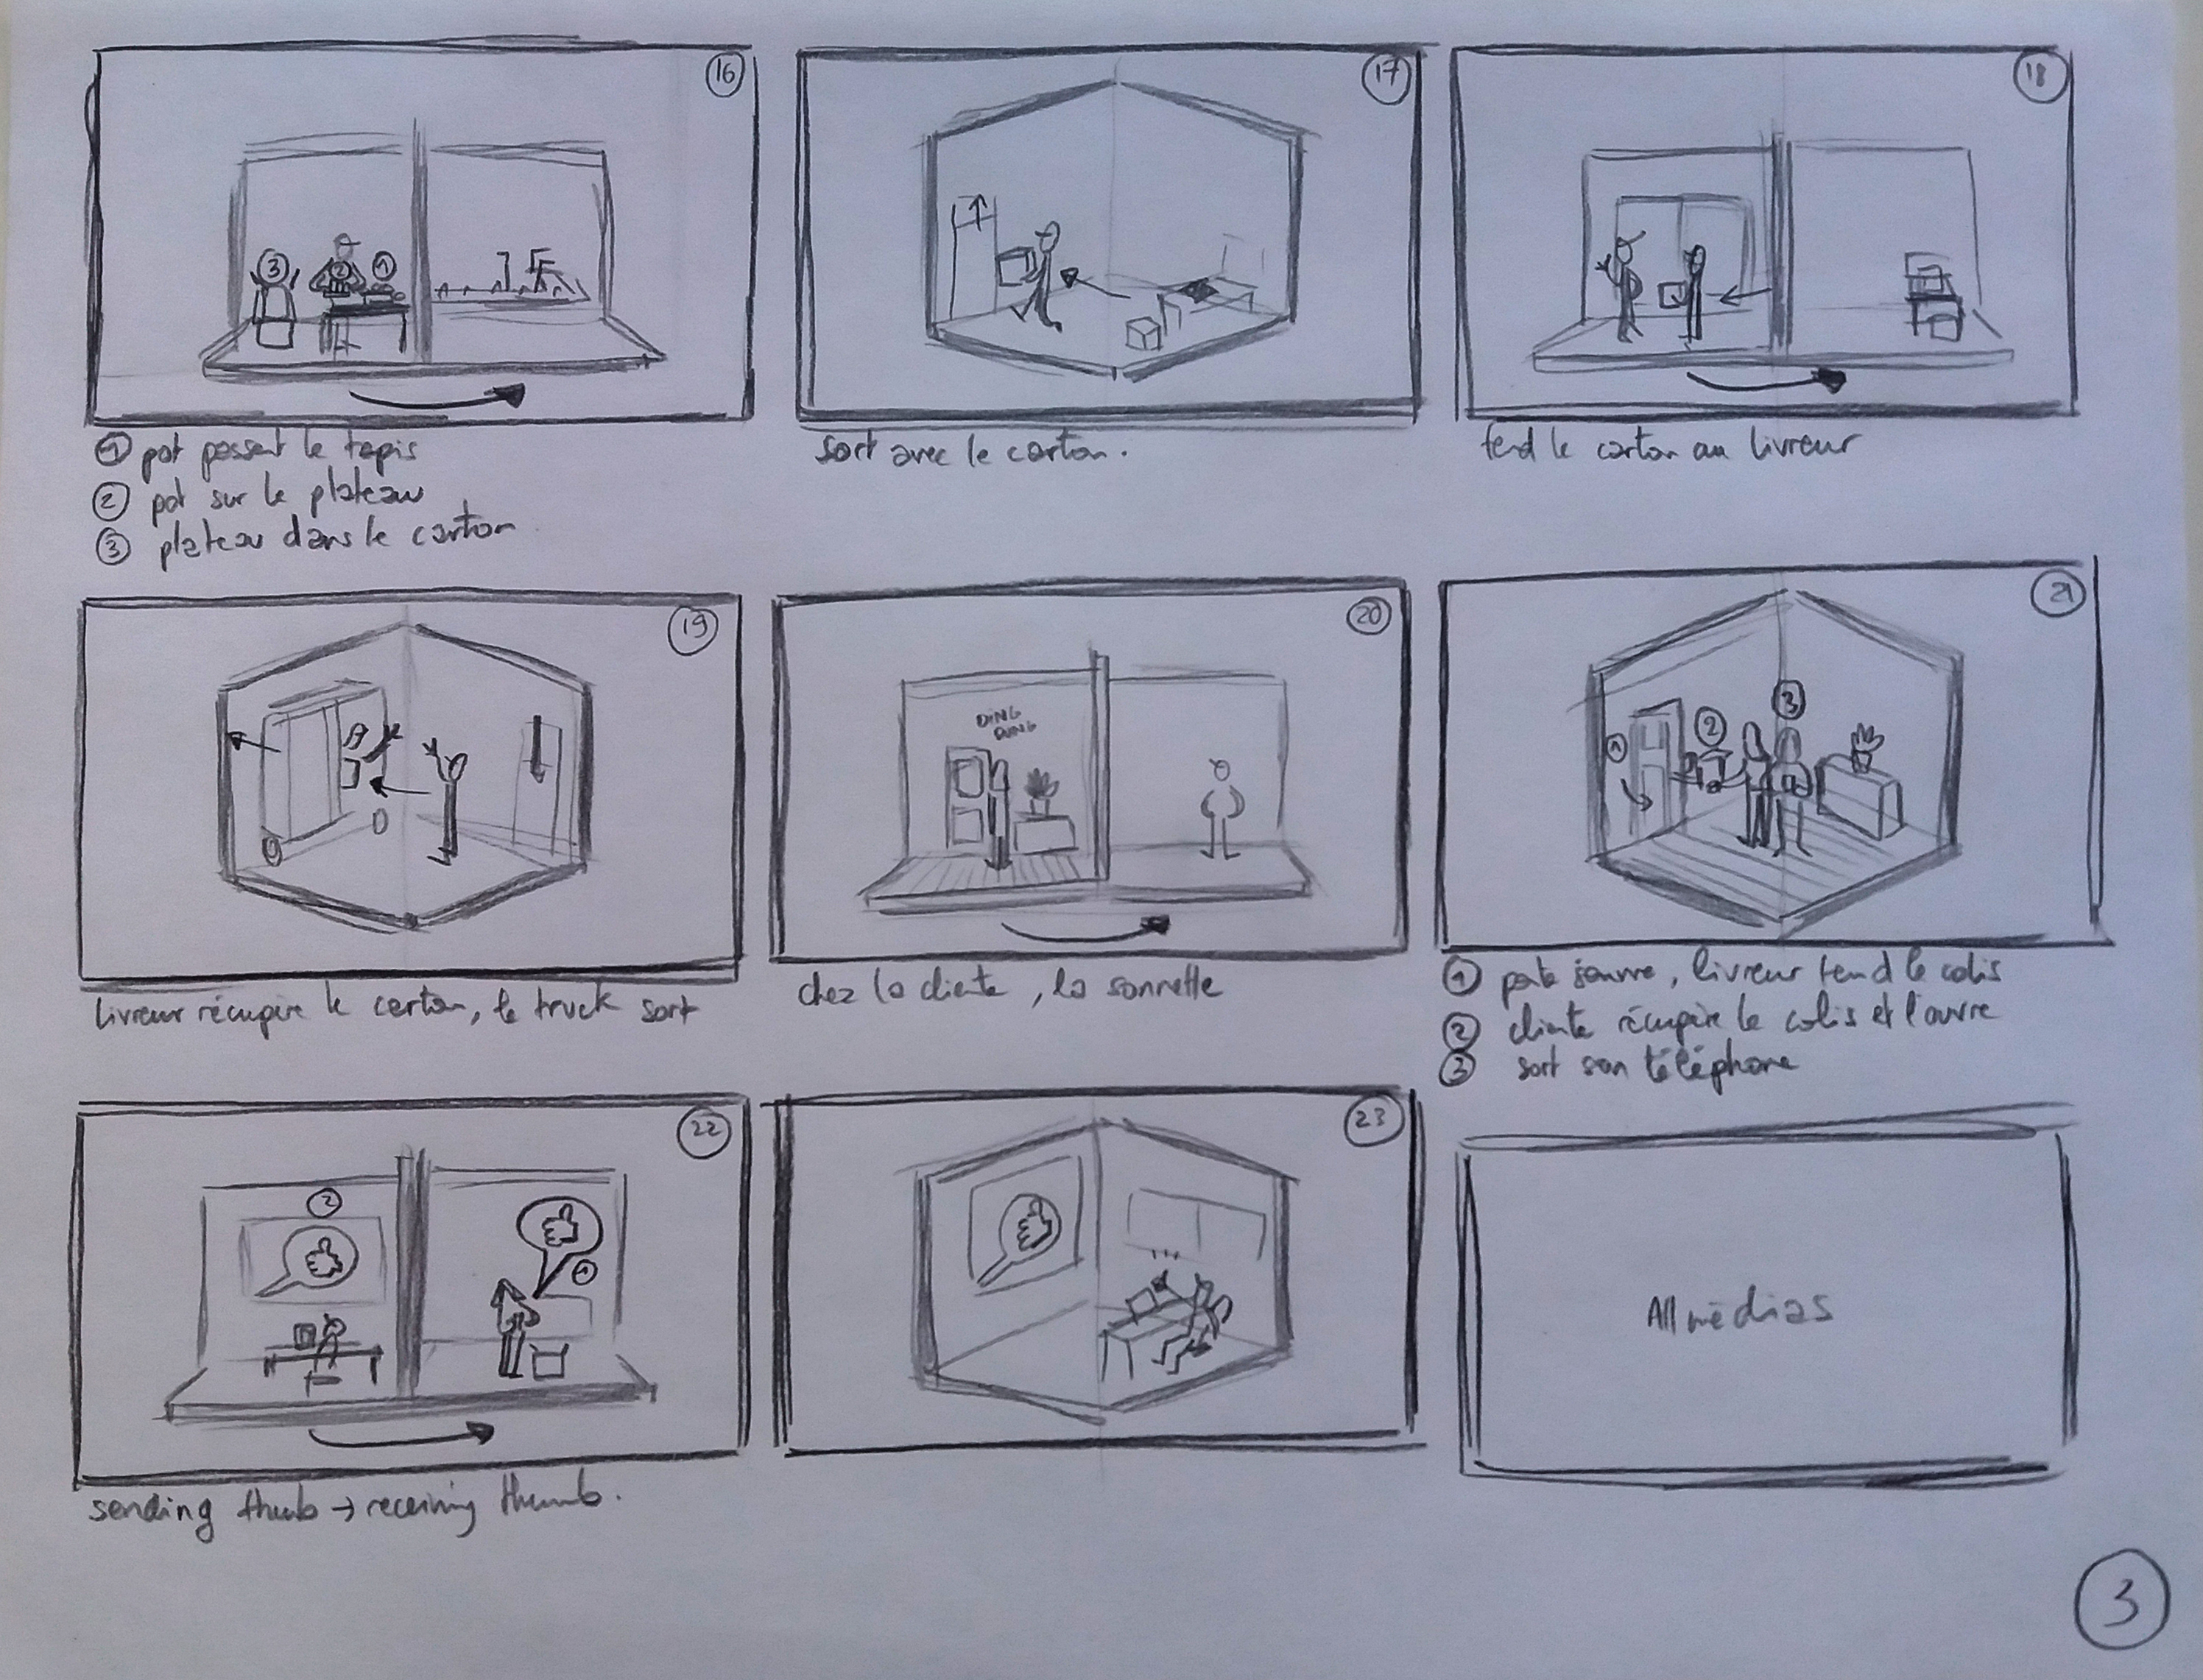 16
17
18
① pot passent le tapis
② pot sur le plateau
③ plateau dans le carton
sort avec le carton.
tend le carton au livreur
19
20
21
DING
DONG
livreur récupère le carton, le truck sort
chez la cliente, la sonnette
① porte s'ouvre, livreur tend le colis
② cliente récupère le colis et l'ouvre
③ sort son téléphone
22
23
All médias
sending thumb → receiving thumb.
3